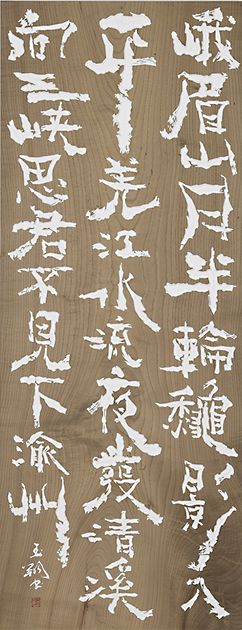 峨眉山月半輪龝影入
平羌江水流夜發清溪
向三峽思君不見下渝州